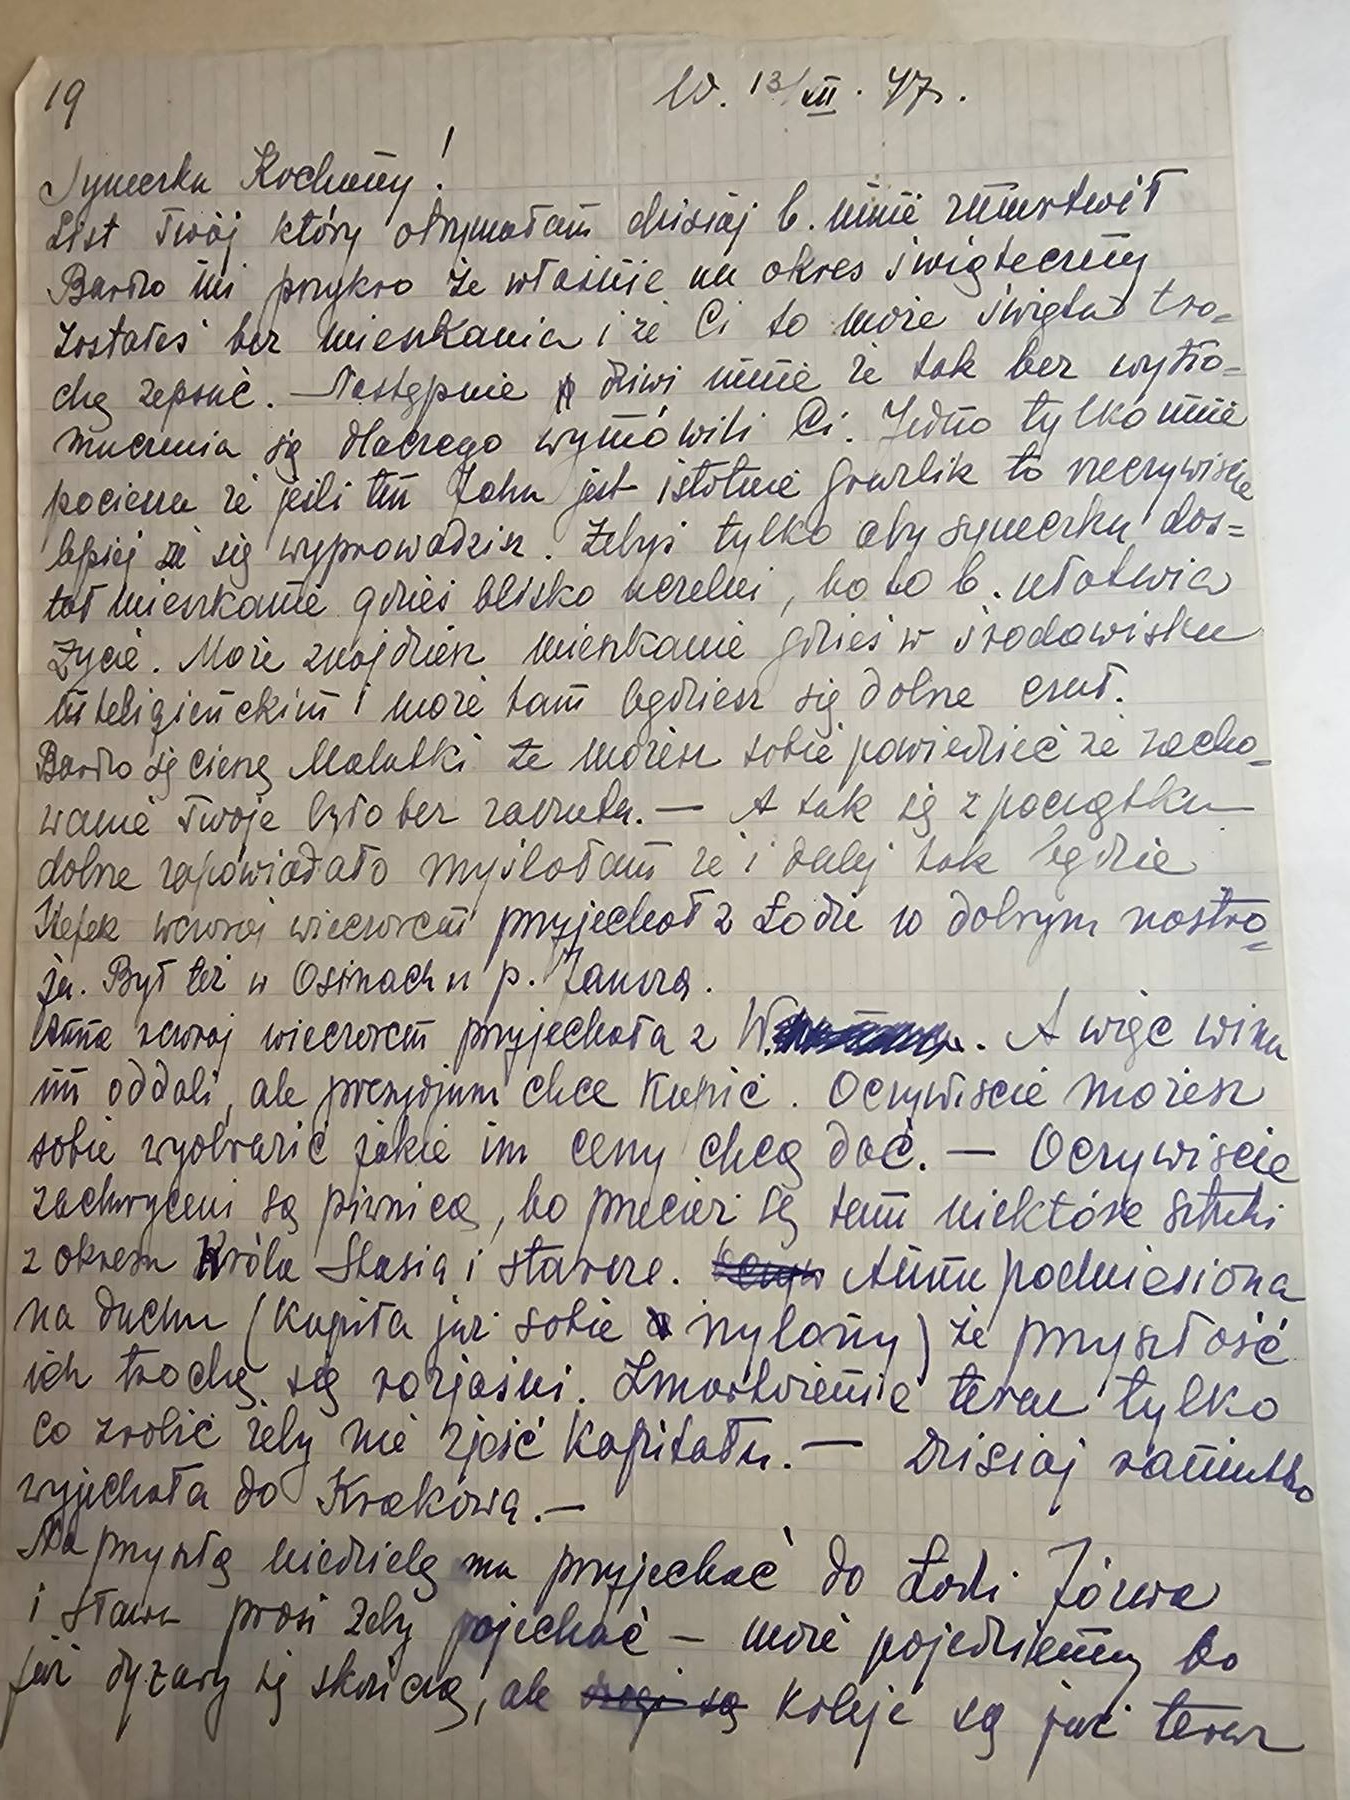 19
W. 13/XII. 47 r.
Syneczku Kochany!
List Twój który otrzymałam dzisiaj b. mnie zmartwił
Bardzo mi przykro że właśnie na okres świąteczny
zostałeś bez mieszkania i że Ci to może święta tro=
chę zepsuć. — Następnie dziwi mnie że tak bez wytło=
maczenia się dlaczego wymówili Ci. Jedno tylko mnie
pociesza że jeśli ten Zahn jest istotnie gruźlik to rzeczywiście
lepiej że się wyprowadzisz. Żebyś tylko aby syneczku dos=
tał mieszkanie gdzieś blisko uczelni, bo to b. ułatwia
życie. Może znajdziesz mieszkanie gdzieś w środowisku
inteligienckim i może tam będziesz się dobrze czuł.
Bardzo się cieszę Malutki że możesz sobie powiedzieć że zacho=
wanie Twoje było bez zarzutu. — A tak się z początku
dobrze zapowiadało myślałam że i dalej tak będzie
Stefek wczoraj wieczorem przyjechał z Łodzi w dobrym nastro=
ju. Był też w Osinach u p. Janusza.
Anna wczoraj wieczorem przyjechała z W. A więc wina
im oddali, ale prezydjum chce kupić. Oczywiście możesz
sobie wyobrazić jakie im ceny chcą dać. — Oczywiście
zachwyceni są piwnicą, bo przecież są tam niektóre sztuki
z okresu Króla Stasia i starsze. Anna podniesiona
na duchu (kupiła już sobie nylony) że przyszłość
ich trochę się rozjaśni. Zmartwienie teraz tylko
co zrobić żeby nie zjeść kapitału. — Dzisiaj raniutko
wyjechała do Krakowa. —
Na przyszłą niedzielę ma przyjechać do Łodzi Józwa
i Sława prosi żeby pojechać — może pojedziemy bo
już dyżury się skończą, ale koleje są już teraz